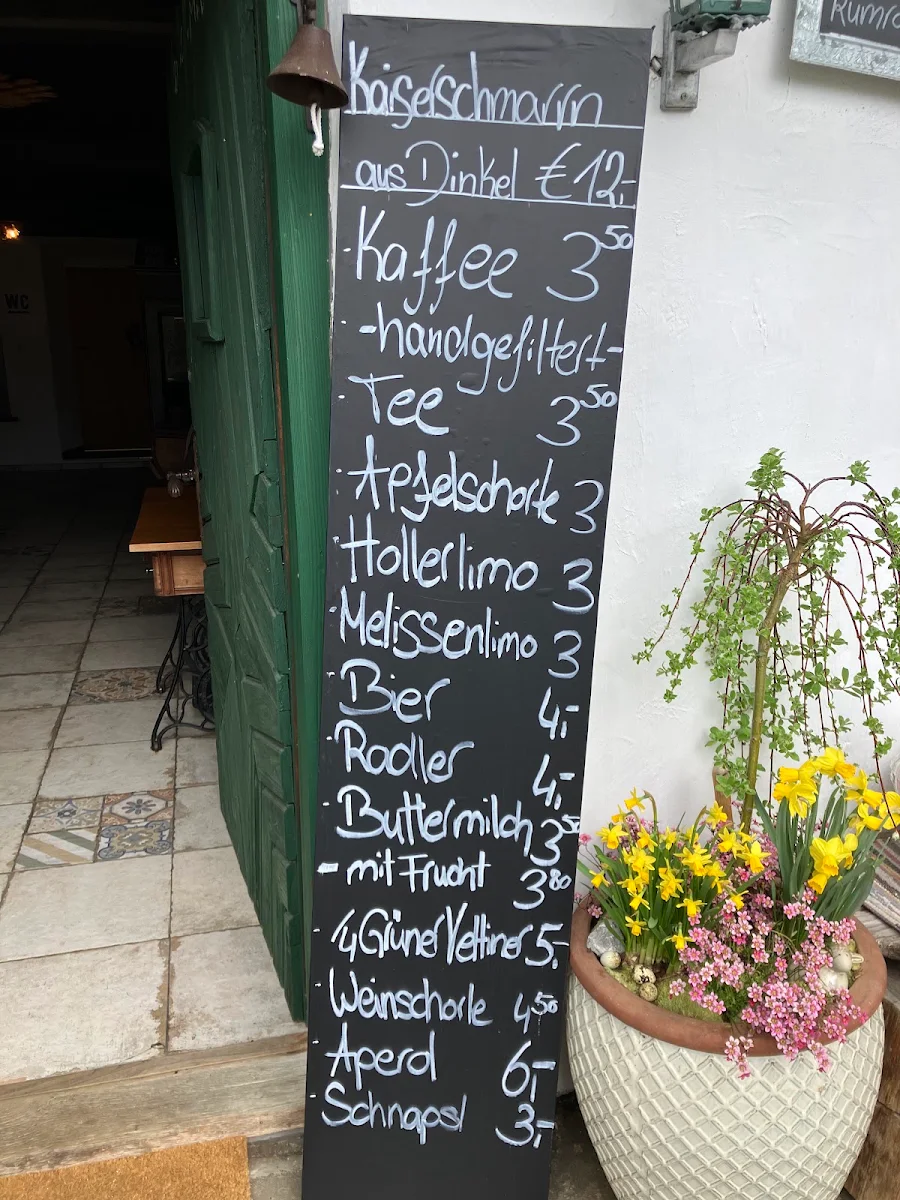 Kaiserschmarrn
aus Dinkel €12,-
· Kaffee 3 50
· -handgefiltert-
· Tee 3 50
· Apfelschorle 3
· Hollerlimo 3
· Melissenlimo 3
· Bier 4,-
· Radler 4,-
· Buttermilch 3 50
- mit Frucht 3 80
· 1/4 Grüner Veltliner 5,-
· Weinschorle 4 50
· Aperol 6,-
· Schnapsl 3,-
WC